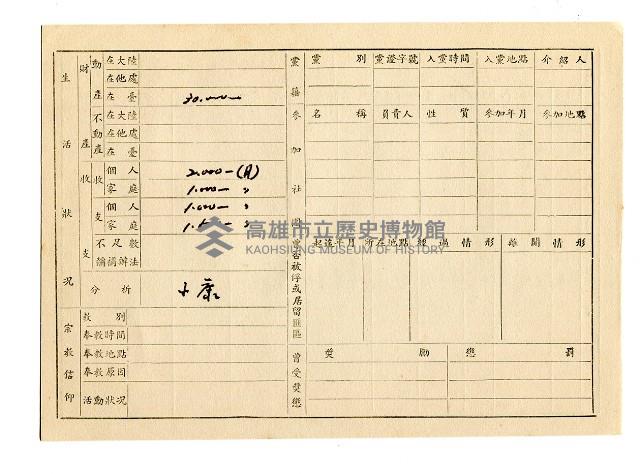 生活狀況
財產
動產
在大陸
在他處
在臺 30.000—
不動產
在大陸
在他處
在臺
收支
收
個人 2.000—(月)
家庭 1.000— 〃
支
個人 1.000— 〃
家庭
不足數
彌補辦法
分析 小康
宗教信仰
教別
奉教時間
奉教地點
奉教原因
活動狀況
黨籍
黨別 黨證字號 入黨時間 入黨地點 介紹人
參加社團
名稱 負責人 性質 參加年月 參加地點
曾否被俘或居留匪區
起訖年月 所在地點 經過情形 離開情形
曾受獎懲
獎勵 懲罰
高雄市立歷史博物館
KAOHSIUNG MUSEUM OF HISTORY